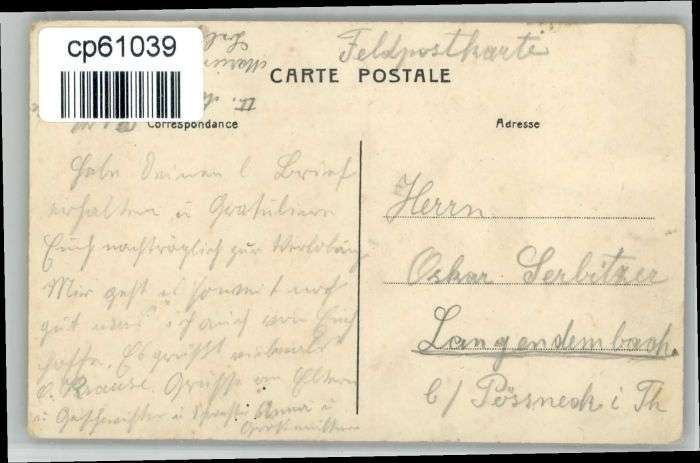 cp61039
Feldpostkarte
CARTE POSTALE
Correspondance
Adresse
Habe Deinen l Brief
erhalten u Gratuliere
Euch nachträglich zur Verlobung
Mir geht es soweit noch
gut was ich auch von Euch
hoffe. Es grüßt vielmals
O. Krause. Grüsse an Eltern
u Geschwister u Anna u
Grossmutter
Herrn
Oskar Serbitzer
Langendembach
b/ Pössneck i Th